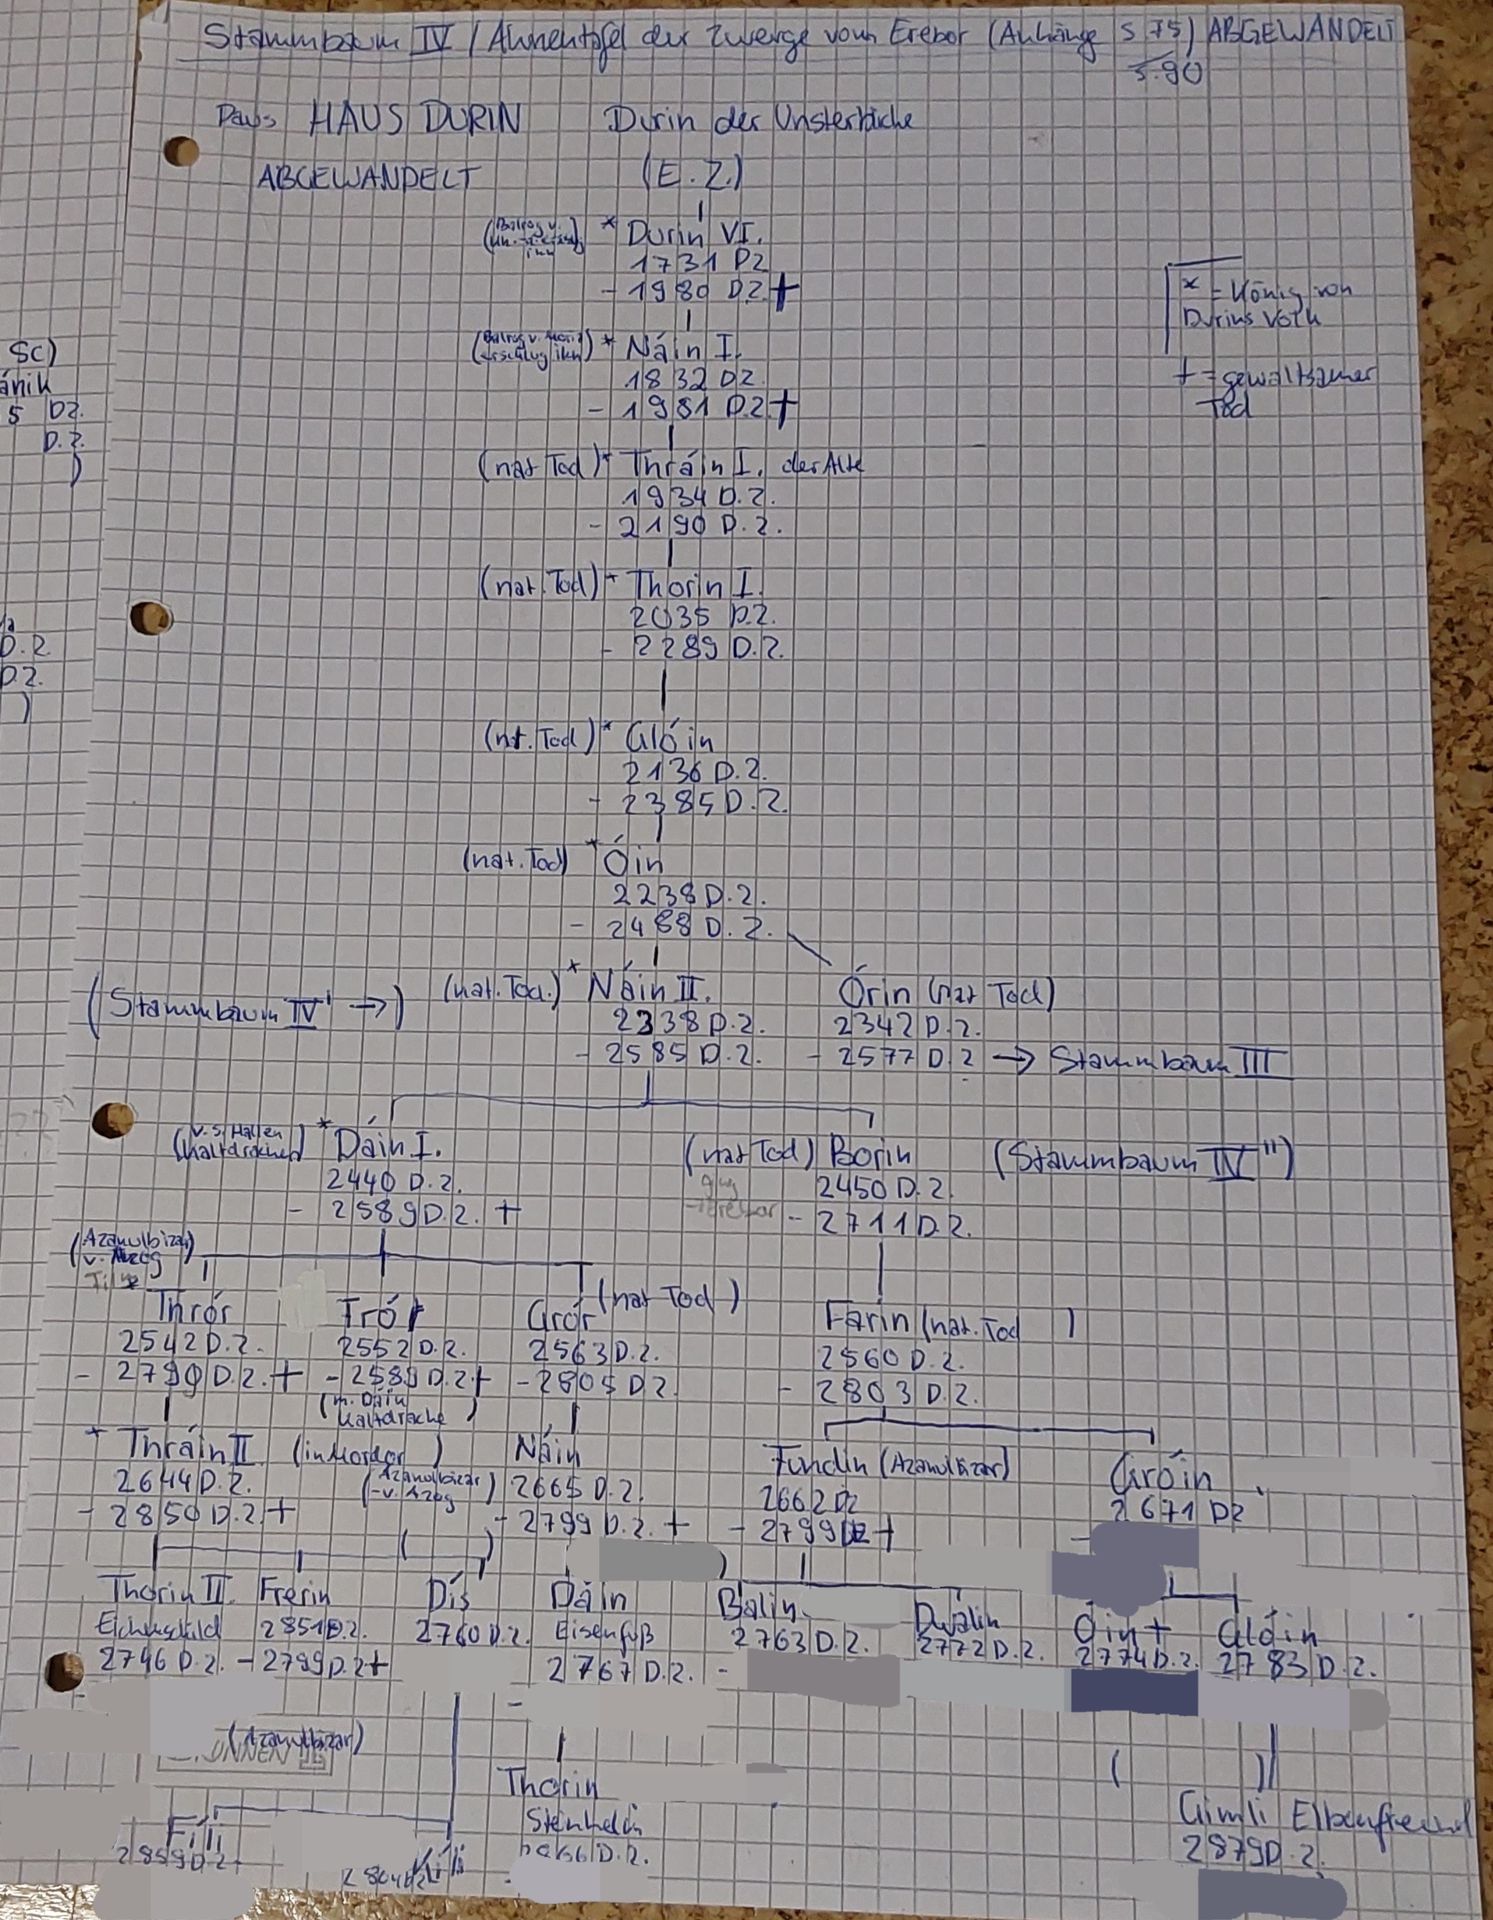 Stammbaum IV / Ahnentafel der Zwerge vom Erebor (Anhänge S 75) ABGEWANDELT
S.90
HAUS DURIN Durin der Unsterbliche
ABGEWANDELT (E.Z.)
(Balrog v. * Durin VI.
ihn
1731 DZ
- 1980 DZ +
* = König von
Durins Volk
+ = gewaltsamer
Tod
(Balrog v. Moria * Náin I.
erschlug ihn)
1832 DZ
- 1981 DZ +
(nat Tod) * Thráin I. der Alte
1934 D.Z.
- 2190 D.Z.
(nat. Tod) * Thorin I.
2035 D.Z.
- 2289 D.Z.
(nt. Tod) * Glóin
2136 D.Z.
- 2385 D.Z.
(nat. Tod) * Óin
2238 D.Z.
- 2488 D.Z.
(Stammbaum IV' →) (nat. Tod.) * Náin II. Órin (nat Tod)
2338 D.Z. 2342 D.Z.
- 2585 D.Z. - 2577 D.Z → Stammbaum III
(v. s. Hallen * Dáin I. (nat Tod) Borin (Stammbaum IV'')
Kaltdrachen)
2440 D.Z. 2450 D.Z.
- 2589 D.Z. + - 2711 D.Z.
(Azanulbizar)
v. Azog
Thrór Frór Grór (nat Tod) Farin (nat. Tod )
2542 D.Z. 2552 D.Z. 2563 D.Z. 2560 D.Z.
- 2790 D.Z. + - 2589 D.Z + - 2805 DZ - 2803 D.Z.
(m. Dáin
Kaltdrache )
* Thráin II. (in Mordor ) Náin Fundin (Azanulbizar) Gróin
(Azanulbizar)
- v. Azog
2644 D.Z. 2665 D.Z. 2662 DZ 2671 DZ
- 2850 D.Z + - 2799 D.Z. + - 2799 DZ +
Thorin II. Frerin Dís Dáin Balin Dwalin Óin + Glóin
Eichenschild 2851 D.Z. 2760 D.Z. Eisenfuß 2763 D.Z. 2772 D.Z. 2774 D.Z. 2783 D.Z.
2746 D.Z. - 2799 D.Z + 2767 D.Z.
(Azanulbizar)
Thorin
Steinhelm
Gimli Elbenfreund
2879 D.Z.
Fíli
2859 D.Z +
Kíli
SC)
5 DZ.
D.Z.
)
D.Z
DZ.
)